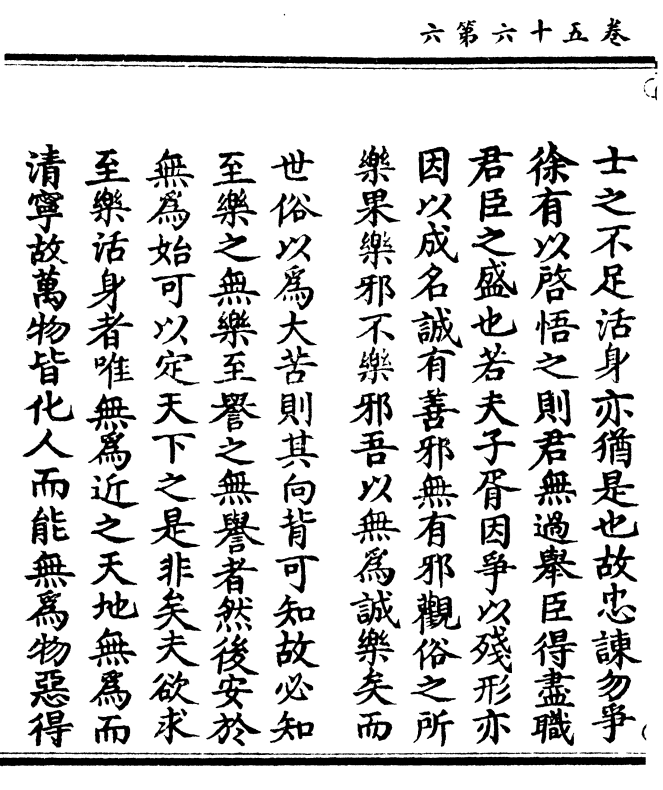 卷五十六第六
士之不足活身亦猶是也故忠諫勿爭
徐有以啓悟之則君無過舉臣得盡職
君臣之盛也若夫子胥因爭以殘形亦
因以成名誠有善邪無有邪觀俗之所
樂果樂邪不樂邪吾以無爲誠樂矣而
世俗以爲大苦則其向背可知故必知
至樂之無樂至譽之無譽者然後安於
無爲始可以定天下之是非矣夫欲求
至樂活身者唯無爲近之天地無爲而
清寧故萬物皆化人而能無爲物惡得